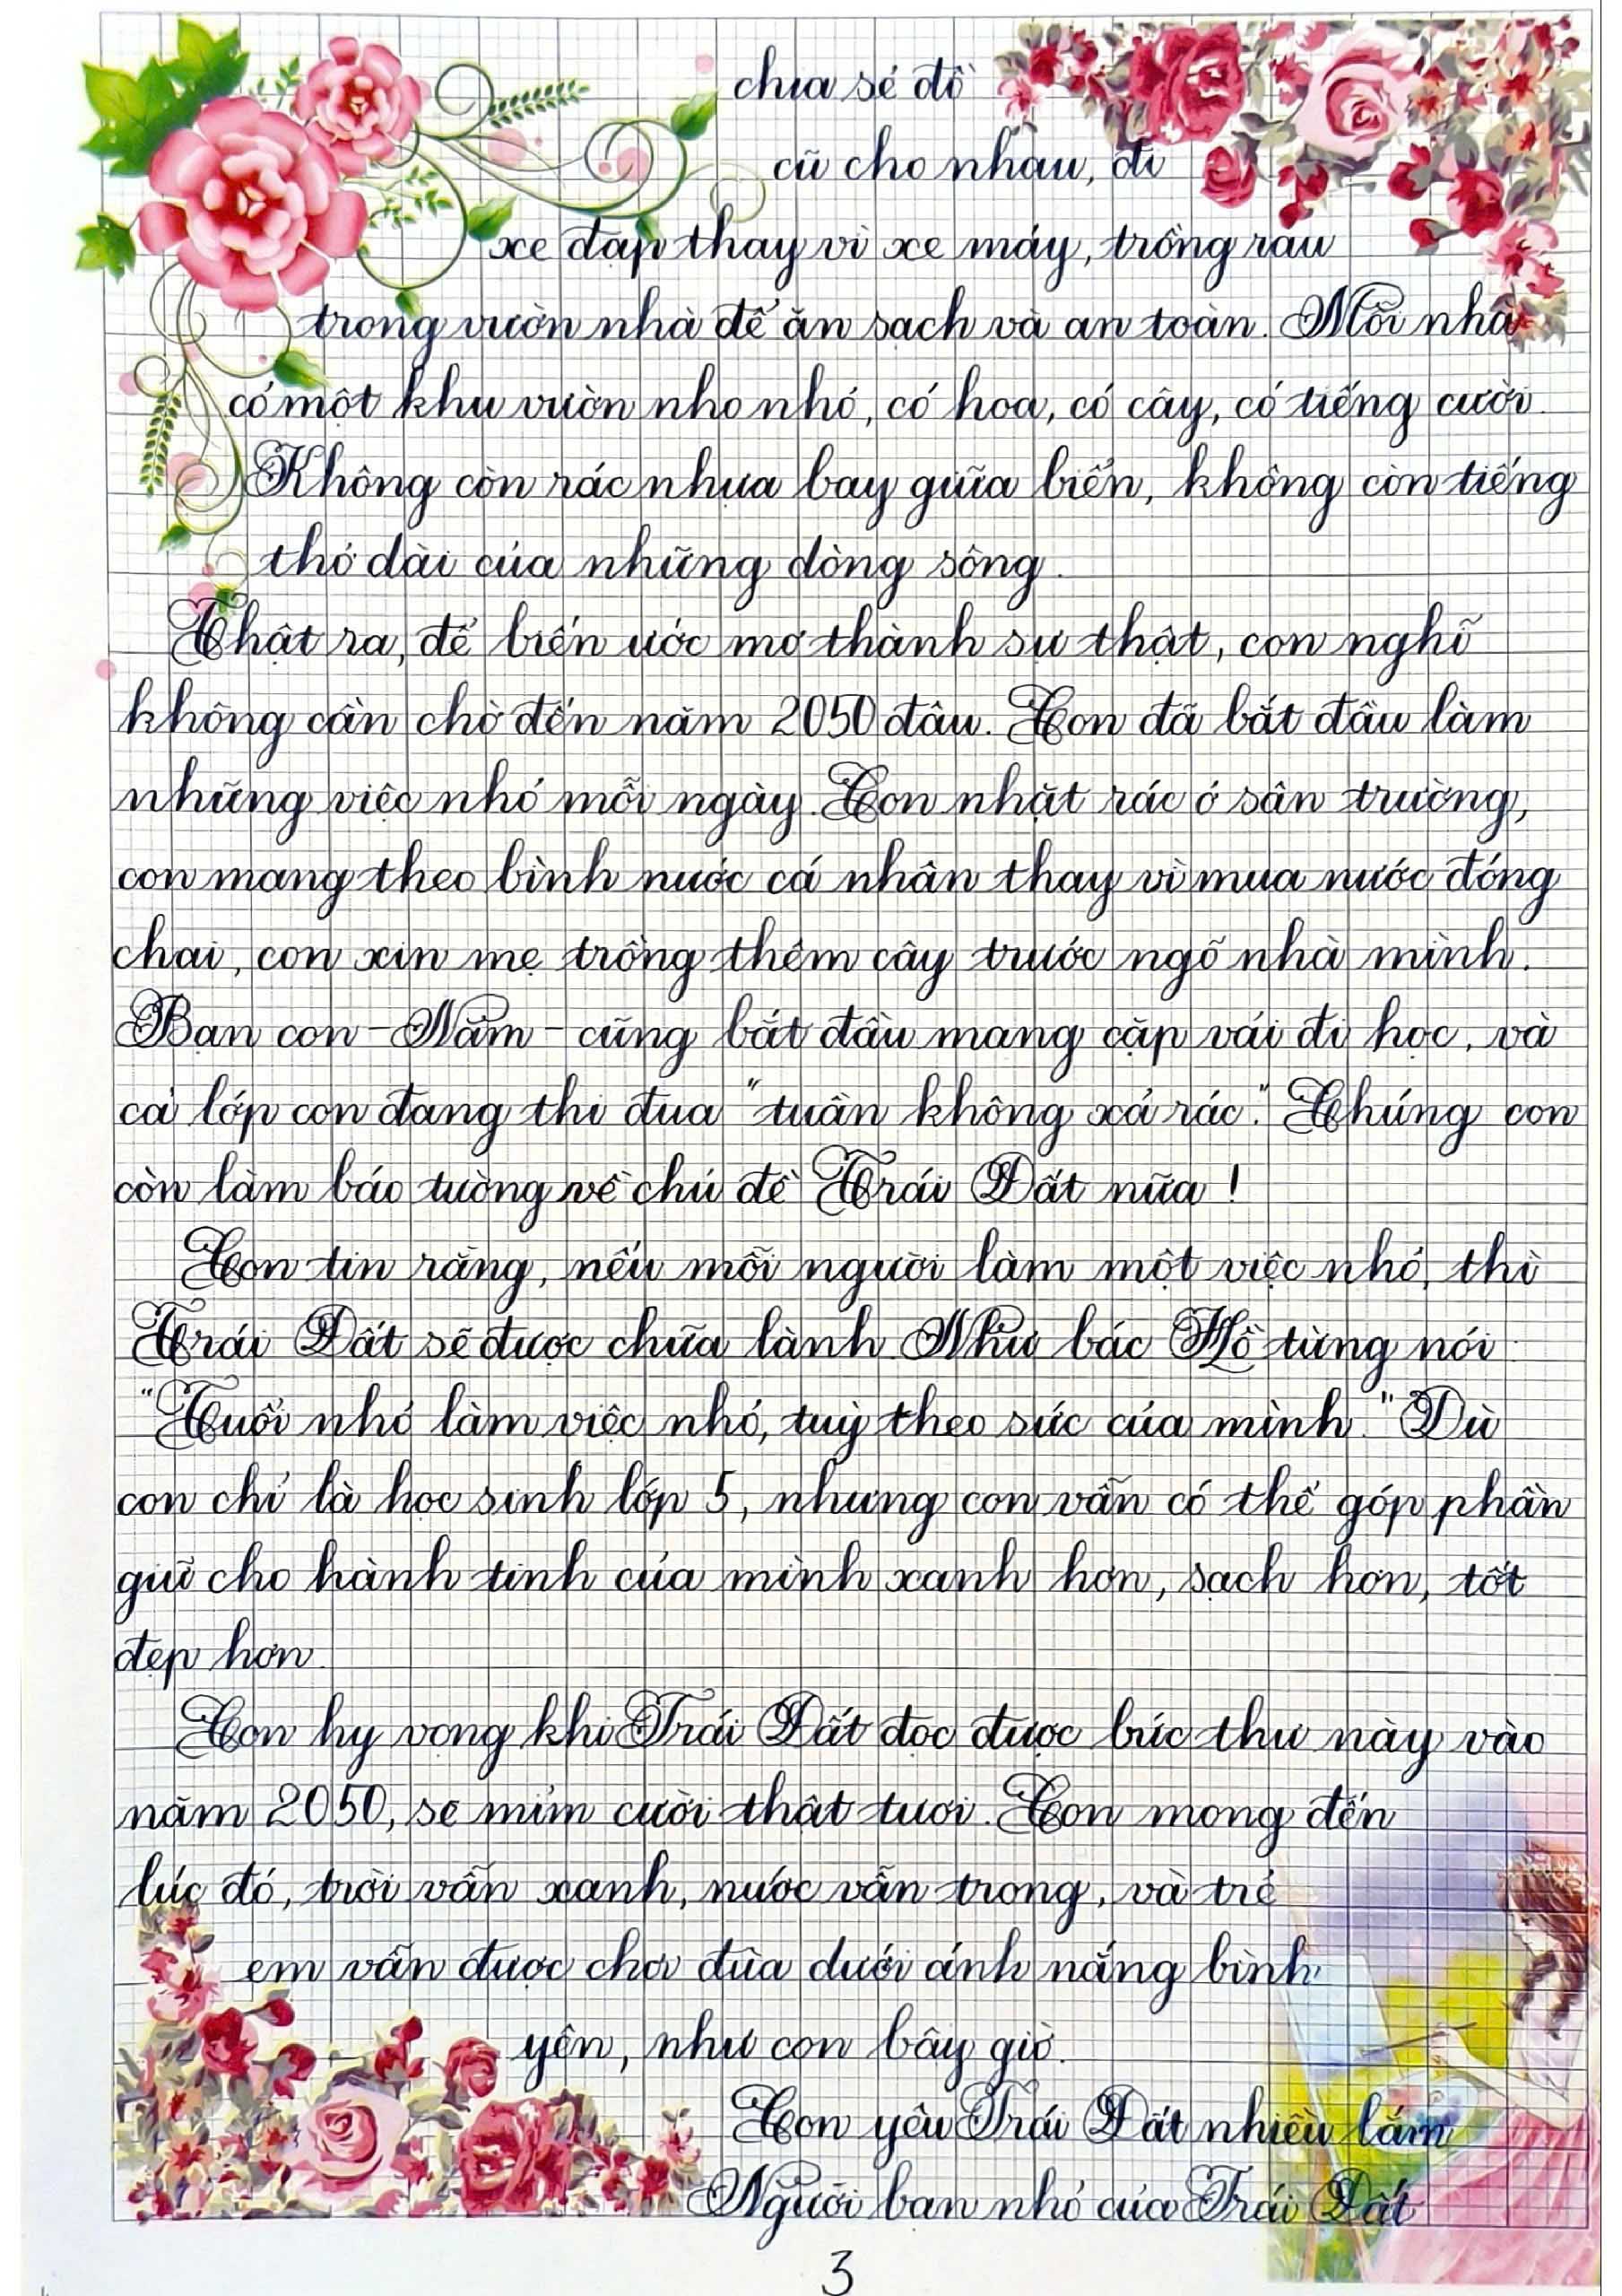 chia sẻ đồ
cũ cho nhau, đi
xe đạp thay vì xe máy, trồng rau
trong vườn nhà để ăn sạch và an toàn. Mỗi nhà
có một khu vườn nho nhỏ, có hoa, có cây, có tiếng cười.
Không còn rác nhựa bay giữa biển, không còn tiếng
thở dài của những dòng sông.
Thật ra, để biến ước mơ thành sự thật, con nghĩ
không cần chờ đến năm 2050 đâu. Con đã bắt đầu làm
những việc nhỏ mỗi ngày. Con nhặt rác ở sân trường,
con mang theo bình nước cá nhân thay vì mua nước đóng
chai, con xin mẹ trồng thêm cây trước ngõ nhà mình.
Bạn con - Nấm - cũng bắt đầu mang cặp vải đi học, và
cả lớp con đang thi đua "tuần không xả rác". Chúng con
còn làm báo tường về chủ đề Trái Đất nữa !
Con tin rằng, nếu mỗi người làm một việc nhỏ, thì
Trái Đất sẽ được chữa lành. Như bác Hồ từng nói:
"Tuổi nhỏ làm việc nhỏ, tuỳ theo sức của mình." Dù
con chỉ là học sinh lớp 5, nhưng con vẫn có thể góp phần
giữ cho hành tinh của mình xanh hơn, sạch hơn, tốt
đẹp hơn.
Con hy vọng khi Trái Đất đọc được bức thư này vào
năm 2050, sẽ mỉm cười thật tươi. Con mong đến
lúc đó, trời vẫn xanh, nước vẫn trong, và trẻ
em vẫn được chơi đùa dưới ánh nắng bình
yên, như con bây giờ.
Con yêu Trái Đất nhiều lắm
Người bạn nhỏ của Trái Đất
3